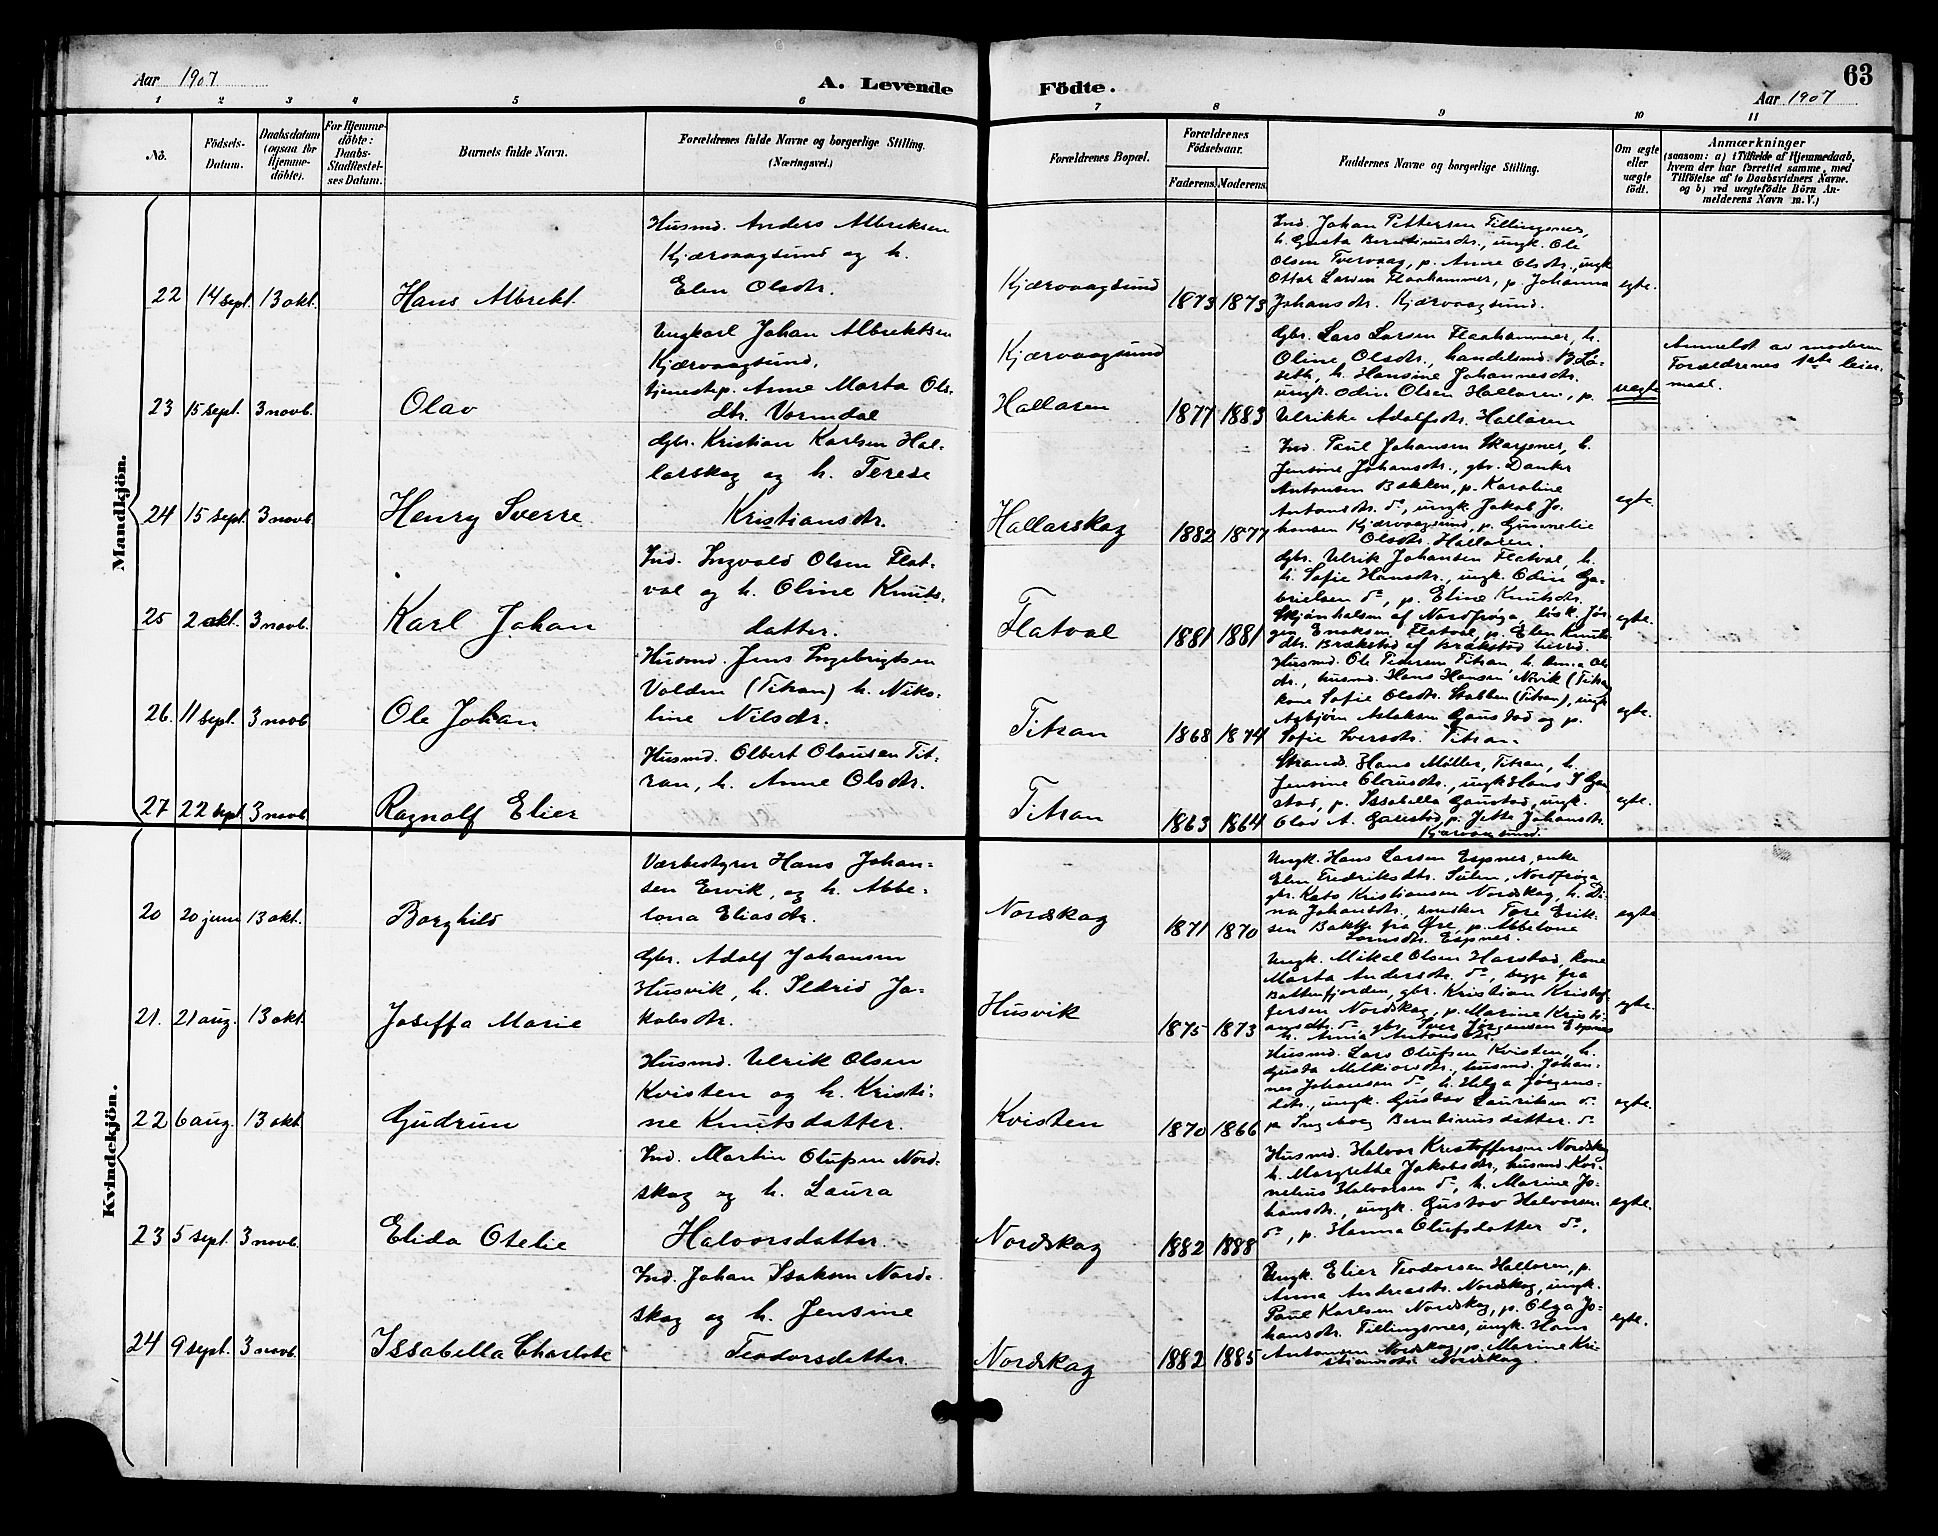 Aar 1907
A. Levende Födte.
63
Aar 1907
1 2 3 4 5 6 7 8 9 10 11
No.
Födsels-Datum.
Daabsdatum (ogsaa for Hjemmedöbte).
For Hjemmedöbte: Daabs-Stadfæstelses Datum.
Barnets fulde Navn.
Forældrenes fulde Navne og borgerlige Stilling. (Næringsvei.)
Forældrenes Bopæl.
Forældrenes Födselsaar.
Faderens. Moderens.
Faddernes Navne og borgerlige Stilling.
Om ægte eller uægte födt.
Anmærkninger
(saasom: a) i Tilfælde af Hjemmedaab,
hvem der har forrettet samme, med
Tilföielse af to Daabsvidners Navne.
og b) ved uægtefödte Börn Anmelderens Navn m. V.)
Mandkjön.
22 14 sept. 13 okt. Hans Albrekt.
Husmd. Anders Albriksen
Kjærvaagsund og h.
Elen Olsdtr.
Kjærvaagsund 1873 1873
Ind. Johan Pettersen Tillingsnes,
h. Gusta Berntinusdtr., ungk. Ole
Olsen Tvervaag, p. Anne Olsdtr., ungk
Ottar Larsen Flaahammer, p. Johanna
Johansdtr. Kjærvaagsund.
egte.
23 15 sept. 3 novb. Olav
Ungkarl Johan Albrektsen
Kjærvaagsund,
tjenestep. Anne Marta Ols-
dtr. Vormdal
Kjærvaagsund
Hallaren 1877 1883
Gbr. Lars Larsen Flaahammer, h.
Oline Olsdtr., handelsmd. B. Lö-
seth, h. Hansine Johannesdtr.
ungk. Odin Olsen Hallaren, p.
Ulrikke Adolfsdtr. Hallaren
uegte
Anmeldt av moderen
Forældrenes 1ste leier-
maal.
24 15 sept. 3 novb. Henry Sverre
Gbr. Kristian Karlsen Hal-
larskag og h. Terese
Kristiansdtr.
Hallarskag 1882 1877
Ind. Paul Johansen Skarpnes, h.
Jensine Johansdtr., gbr. Danke
Antonsen Bakken, p. Karoline
Antonsdtr. do, ungk. Jakob Jo-
hansen Kjærvaagsund, p. Gunnelie
Olsdtr. Hallaren.
egte.
25 2 okt. 3 novb. Karl Johan
Ind. Ingvald Olsen Flat-
val og h. Oline Knuts-
datter.
Flatval 1881 1881
Gbr. Ulrik Johansen Flatval, h.
h. Sofie Hansdtr., ungk. Odin Ga-
brielsen do, p. Eline Knutsdtr.
Skjønhalsen af Nordfrøya, løsk. Jör-
gen Enoksen Flatval, p. Elen Knuts-
dtr. Brækstad af Brækstad herred.
egte.
26. 11 sept. 3 novb. Ole Johan
Husmd. Jens Ingebrigtsen
Volden (Titran) h. Niko-
line Nilsdtr.
Titran 1868 1874
Husmd. Ole Pedersen Titran, h. Anna Ols-
dtr., husmd. Hans Hansen Nevik (Titran
kone Sofie Olsdtr. Stabben (Titran), ungk
Asbjörn Aslaksen Gaustad og p.
Sofie Iversdtr. Titran.
egte.
27 22 sept. 3 novb Ragnalf Elier
Husmd. Olbert Olausen Tit-
ran, h. Anne Olsdtr.
Titran 1863 1864
Strands. Hans Møller, Titran, h.
Jensine Olausdtr., ungk Hans I Gau-
stad, p. Issabella Gaustad, ungk.
Olav A. Gaustad, p. Jette Johansdtr.
Kjærvaagsund.
egte.
Kvindekjön.
20 20 juni 13 okt. Borghild
Værbestyrer Hans Johan-
sen Ervik, og h. Abbe-
lona Eliasdtr.
Nordskag 1871 1870
Ungk. Hans Larsen Espnes, enke
Elen Fredriksdtr. Sulen, Nordfrøya
gbr. Kato Kristiansen Nordskag, h. Di-
na Johansdtr., snedker Tore Erik-
sen Bakke fra Øre, p. Abbelone
Larsdtr. Espnes.
egte
21. 21 aug. 13 okt. Joseffa Marie
Gbr. Adolf Johansen
Husvik, h. Ildrid Ja-
kobsdtr.
Husvik 1875 1873
Ungk. Mikal Olsen Harstad, kone
Marta Andersdtr. do, begge fra
Battenfjorden, gbr. Kristian Kristof-
fersen Nordskag, p. Marine Kristi-
ansdtr. do, gbr. Iver Jörgensen Espnes
h. Anna Antonsdtr.
egte.
22 6 aug. 13 okt Gudrun
Husmd. Ulrik Olsen
Kvisten og h. Kristi-
ne Knutsdatter.
Kvisten 1870 1866
Husmd. Lars Olufsen Kvisten, h.
Gusta Melkiorsdtr., husmd. Johan-
nes Johansen do, h. Helga Jörgens-
dtr., ungk. Gustav Lauriksen do
p. Ingeborg Berntinusdatter. do
egte.
23 5 sept. 3 novb. Elida Otelie
Ind. Martin Olufsen Nord-
skag og h. Laura
Halvorsdatter.
Nordskag 1882 1888
Husmd. Halvor Kristoffersen Nordskag
h. Margrethe Jakobsdtr., husmd. Kor-
nelius Halvorsen do, h. Marine Jo-
hansdtr., ungk. Gustav Halvorsen
do, p. Hanna Olufsdatter do.
egte.
24 9 sept. 3 novb. Issabella Charlote
Ind. Johan Isaksen Nord-
skag og h. Jensine
Teodorsdatter.
Nordskag 1882 1885
Ungk. Elier Teodorsen Hallaren, p.
Anna Andreasdtr. Nordskag, ungk.
Paul Karlsen Nordskag, p. Olga Jo-
hansdtr. Tillingsnes, ungk. Hans
Antonsen Nordskag, p. Marine Kri-
stiansdtr. Nordskag.
egte.